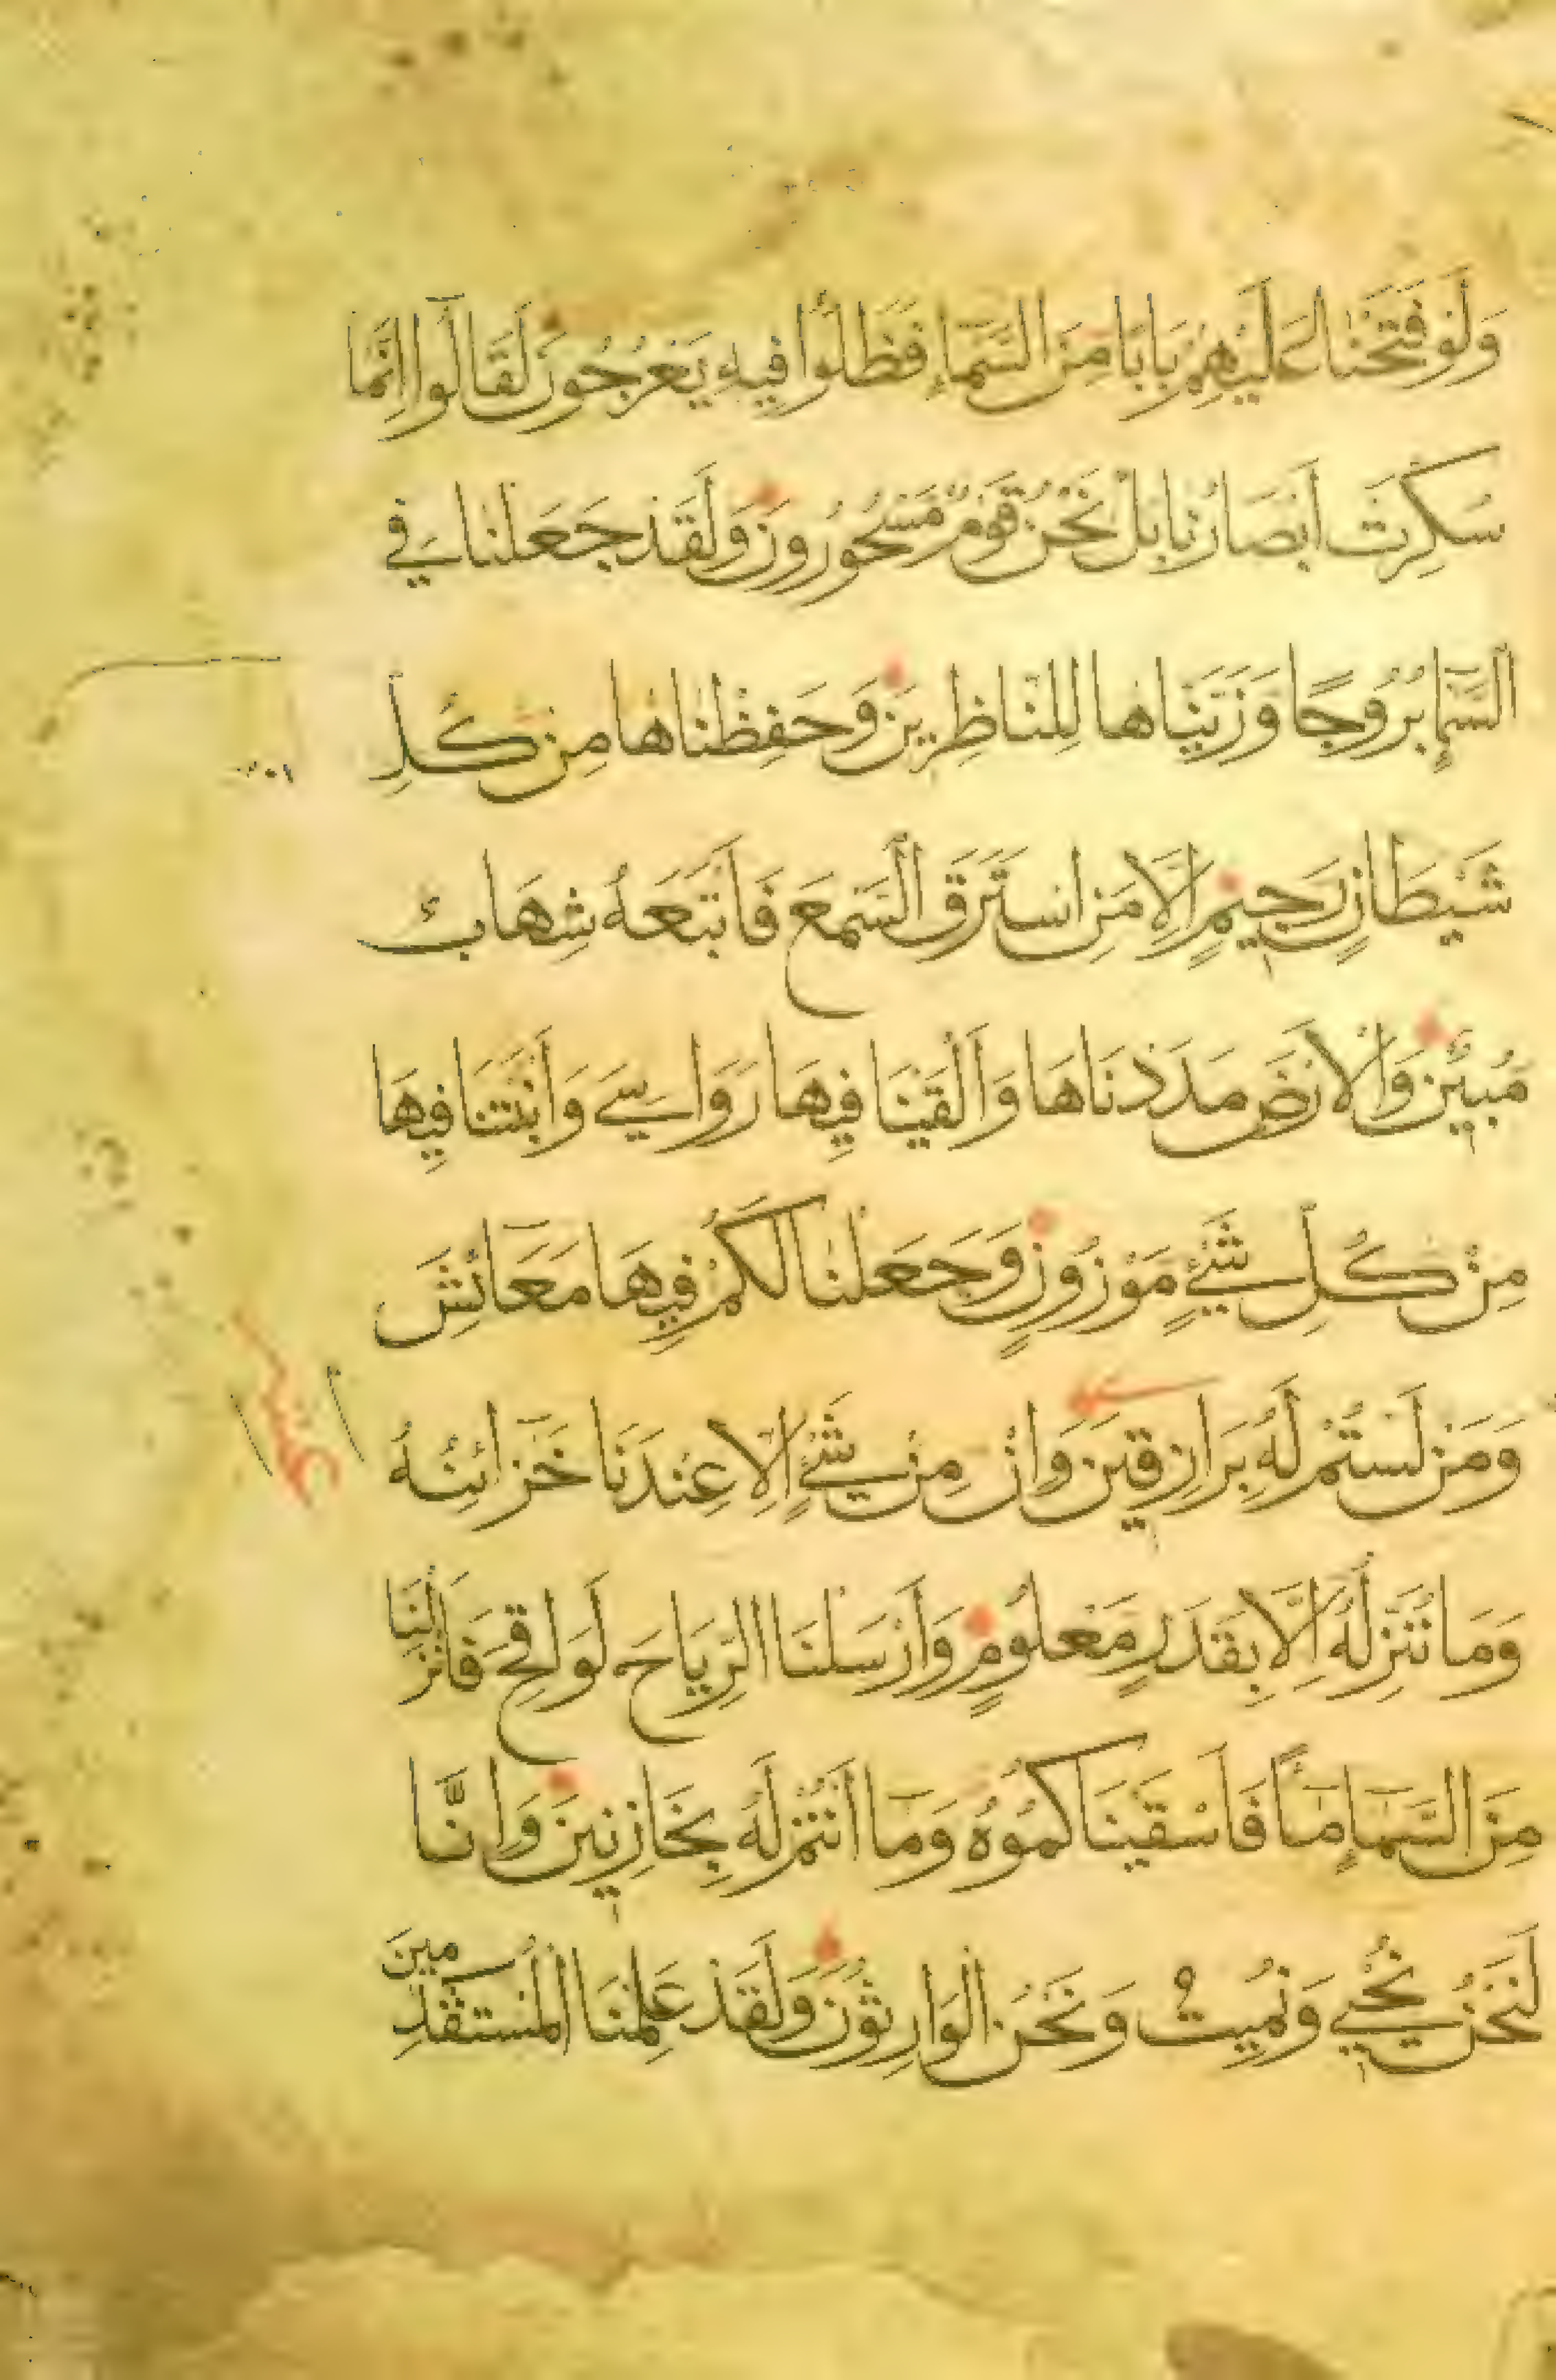 وَلَوْ فَتَحْنَا عَلَيْهِمْ بَابًا مِنَ السَّمَاءِ فَظَلُّوا فِيهِ يَعْرُجُونَ لَقَالُوا إِنَّمَا
سُكِّرَتْ أَبْصَارُنَا بَلْ نَحْنُ قَوْمٌ مَسْحُورُونَ وَلَقَدْ جَعَلْنَا فِي
السَّمَاءِ بُرُوجًا وَزَيَّنَّاهَا لِلنَّاظِرِينَ وَحَفِظْنَاهَا مِنْ كُلِّ
شَيْطَانٍ رَجِيمٍ إِلَّا مَنِ اسْتَرَقَ السَّمْعَ فَأَتْبَعَهُ شِهَابٌ
مُبِينٌ وَالْأَرْضَ مَدَدْنَاهَا وَأَلْقَيْنَا فِيهَا رَوَاسِيَ وَأَنْبَتْنَا فِيهَا
مِنْ كُلِّ شَيْءٍ مَوْزُونٍ وَجَعَلْنَا لَكُمْ فِيهَا مَعَائِشَ
وَمَنْ لَسْتُمْ لَهُ بِرَازِقِينَ وَإِنْ مِنْ شَيْءٍ إِلَّا عِنْدَنَا خَزَائِنُهُ
وَمَا نُنَزِّلُهُ إِلَّا بِقَدَرٍ مَعْلُومٍ وَأَرْسَلْنَا الرِّيَاحَ لَوَاقِحَ فَأَنْزَلْنَا
مِنَ السَّمَاءِ مَاءً فَأَسْقَيْنَاكُمُوهُ وَمَا أَنْتُمْ لَهُ بِخَازِنِينَ وَإِنَّا
لَنَحْنُ نُحْيِي وَنُمِيتُ وَنَحْنُ الْوَارِثُونَ وَلَقَدْ عَلِمْنَا الْمُسْتَقْدِمِينَ